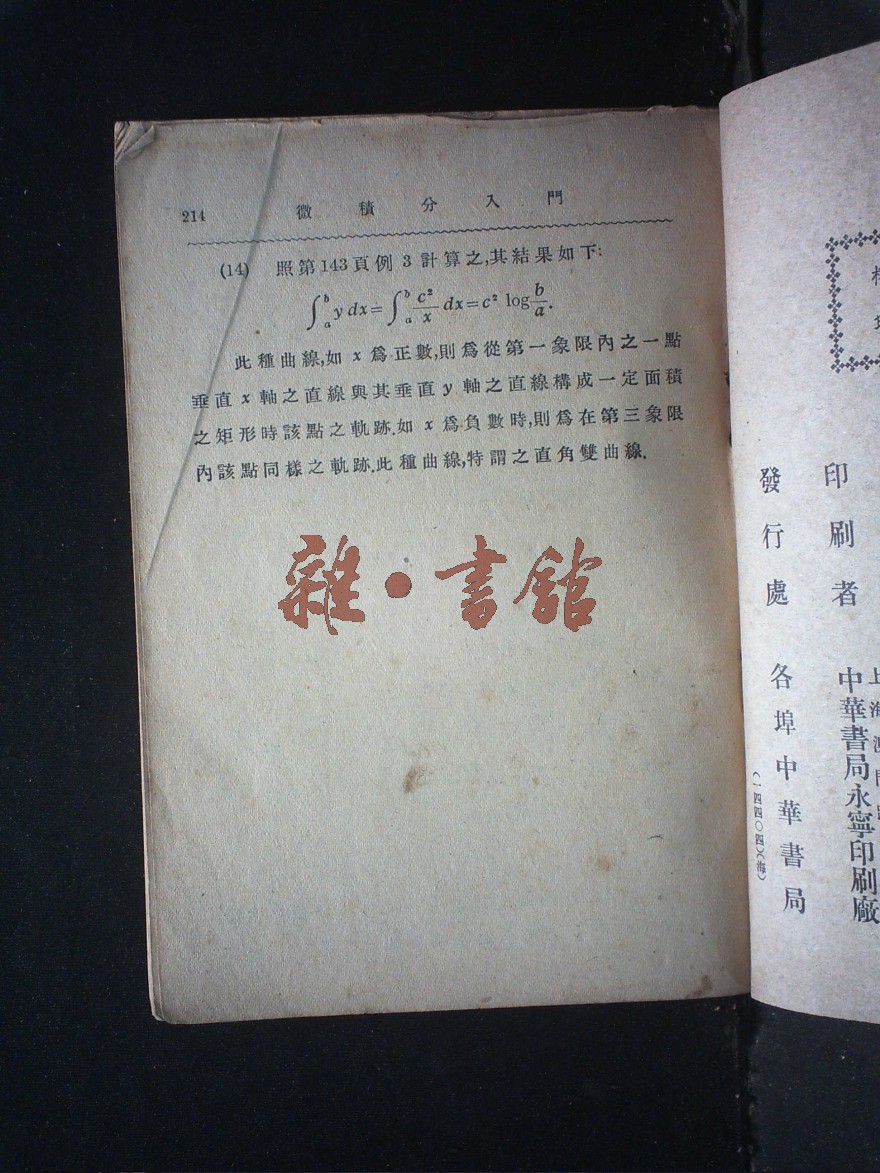 214 微積分入門
(14) 照第143頁例 3 計算之,其結果如下:
∫ₐᵇ y dx = ∫ₐᵇ c²/x dx = c² log b/a.
此種曲線,如 x 爲正數,則爲從第一象限內之一點
垂直 x 軸之直線與其垂直 y 軸之直線構成一定面積
之矩形時該點之軌跡.如 x 爲負數時,則爲在第三象限
內該點同樣之軌跡.此種曲線,特謂之直角雙曲線.
雜·書館
印刷者 中華書局永寧印刷廠
發行處 各埠中華書局
(一四四〇四)(海)